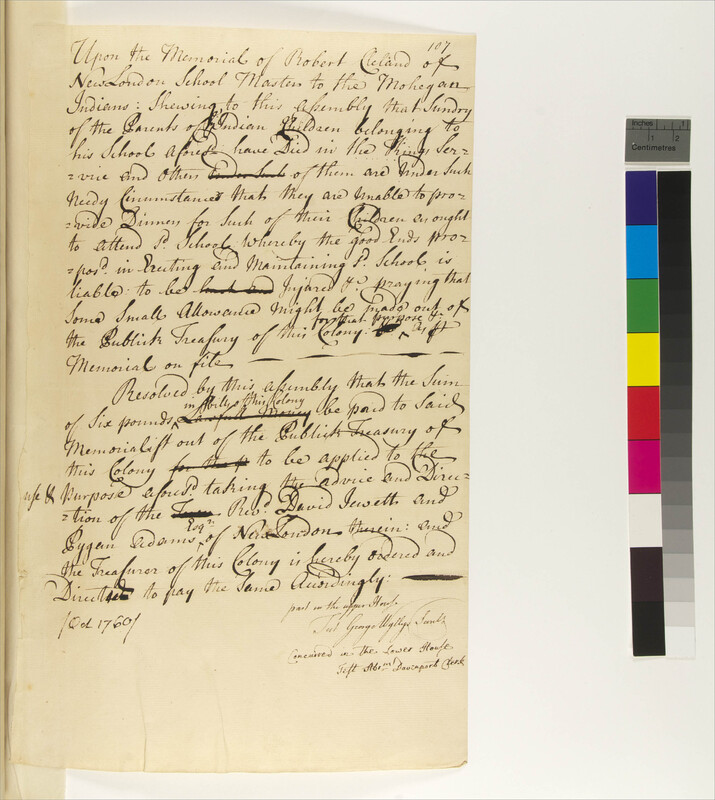 107
Upon the Memorial of Robert Cleland of
New London School Master to the Mohegan
Indians: Shewing to this Assembly that Sundry
of the Parents of ye Indian Children belonging to
his School aforesd have Died in the Kings Ser-
-vice and others under such of them are under Such
needy Circumstances that they are Unable to pro-
-vide Dinners for Such of their Children as ought
to attend sd School, whereby the good Ends pro-
-posd in Erecting and Maintaining sd School is
liable to be Injured &c praying that
Some Small Allowance might be made out of
for that purpose &c
the Publick Treasury of this Colony. As pr
Memorial on file
Resolved by this Assembly that the Sum
in Bills of this Colony
of Six pounds Lawfull Money be paid to Said
Memorialist out of the Publick Treasury of
this Colony to be applied to the
use & Purpose aforesd taking the advice and Direc-
-tion of the Revd David Jewett and
Esqr
Pygan Adams, of New London therein: and
the Treasurer of this Colony is hereby ordered and
Directed to pay the Same Accordingly:
[Oct 1760]
past in the upper House
Test George Wyllys Secretr
Concurred in the Lower House
Test Abrm Davenport Clerk